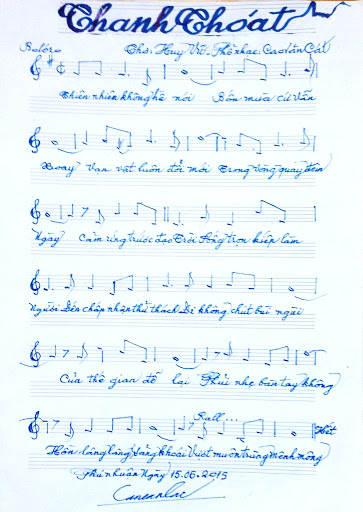 Thanh Thoát
Boléro Thơ: Huy Vũ - Phổ nhạc: Cao Văn Cát
Thiên nhiên không hề nói Bốn mùa cứ vẫn
Xoay Vạn vật luôn đổi mới Trong vòng quay thần
Ngày Cảm ứng trước đạo Trời Sống trọn kiếp làm
Người Dẻn chấp nhận thử thách Di không chút bùi ngùi
Của thế gian để lại Phủi nhẹ bàn tay không
Rall... Hết
Hồn lâng lâng sảng khoái Vượt muôn trùng mênh mông
Phú nhuận Ngày 15.06.2015